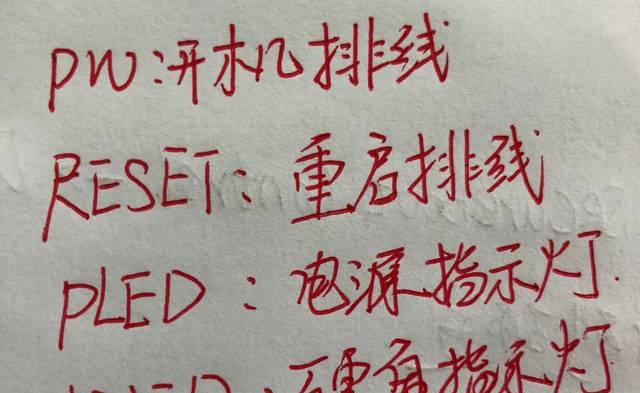 PW:开机排线
RESET:重启排线
PLED:电源指示灯.
指示灯